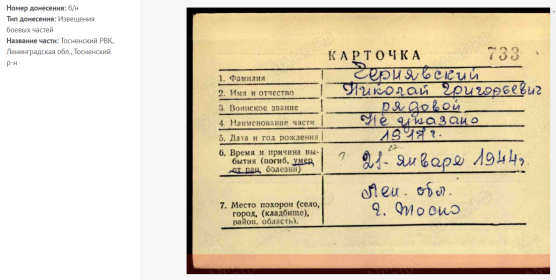 Номер донесения: б/н
Тип донесения: Извещения
боевых частей
Название части: Тосненский РВК,
Ленинградская обл., Тосненский
р-н
КАРТОЧКА 733
1. Фамилия Чернявский
2. Имя и отчество Николай Григорьевич
3. Воинское звание рядовой
4 Наименование части Не указано
5. Дата и год рождения г.
6. Время и причина вы-
бытия (погиб, умер
от ран, болезни) ? 21- января 1944г.
Лен. обл.
7. Место похорон (село,
город, (кладбище),
район, область). г. Тосно